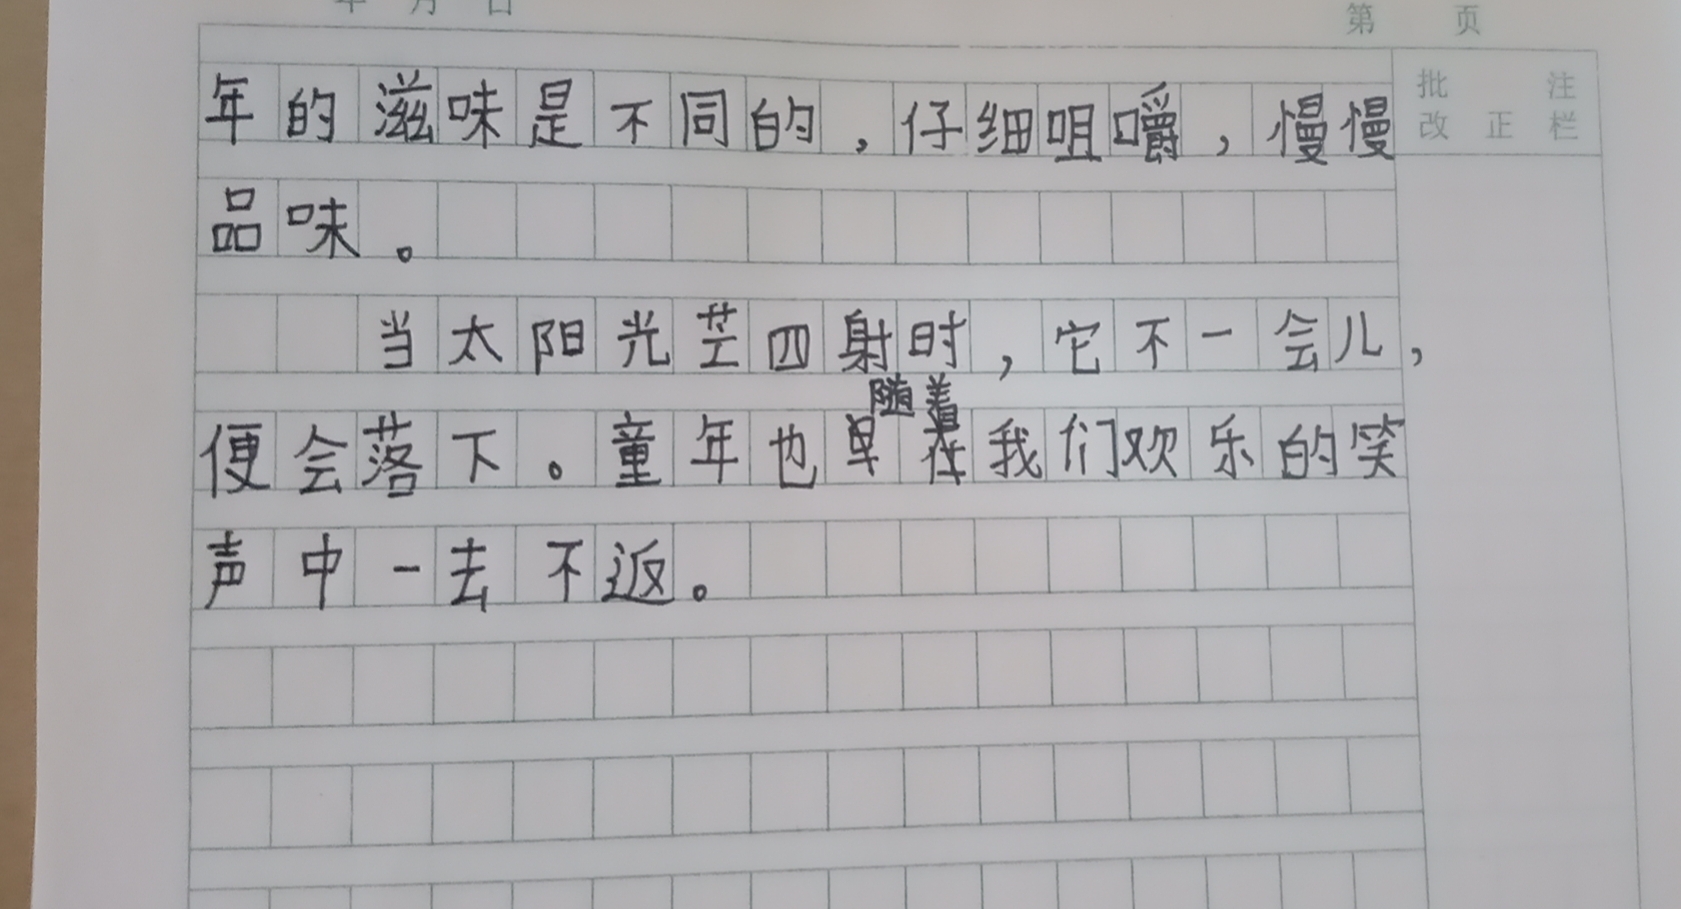 年 月 日
第 页
批 注
改 正 栏
年的滋味是不同的，仔细咀嚼，慢慢
品味。
当太阳光芒四射时，它不一会儿，
随着
便会落下。童年也早在我们欢乐的笑
声中一去不返。